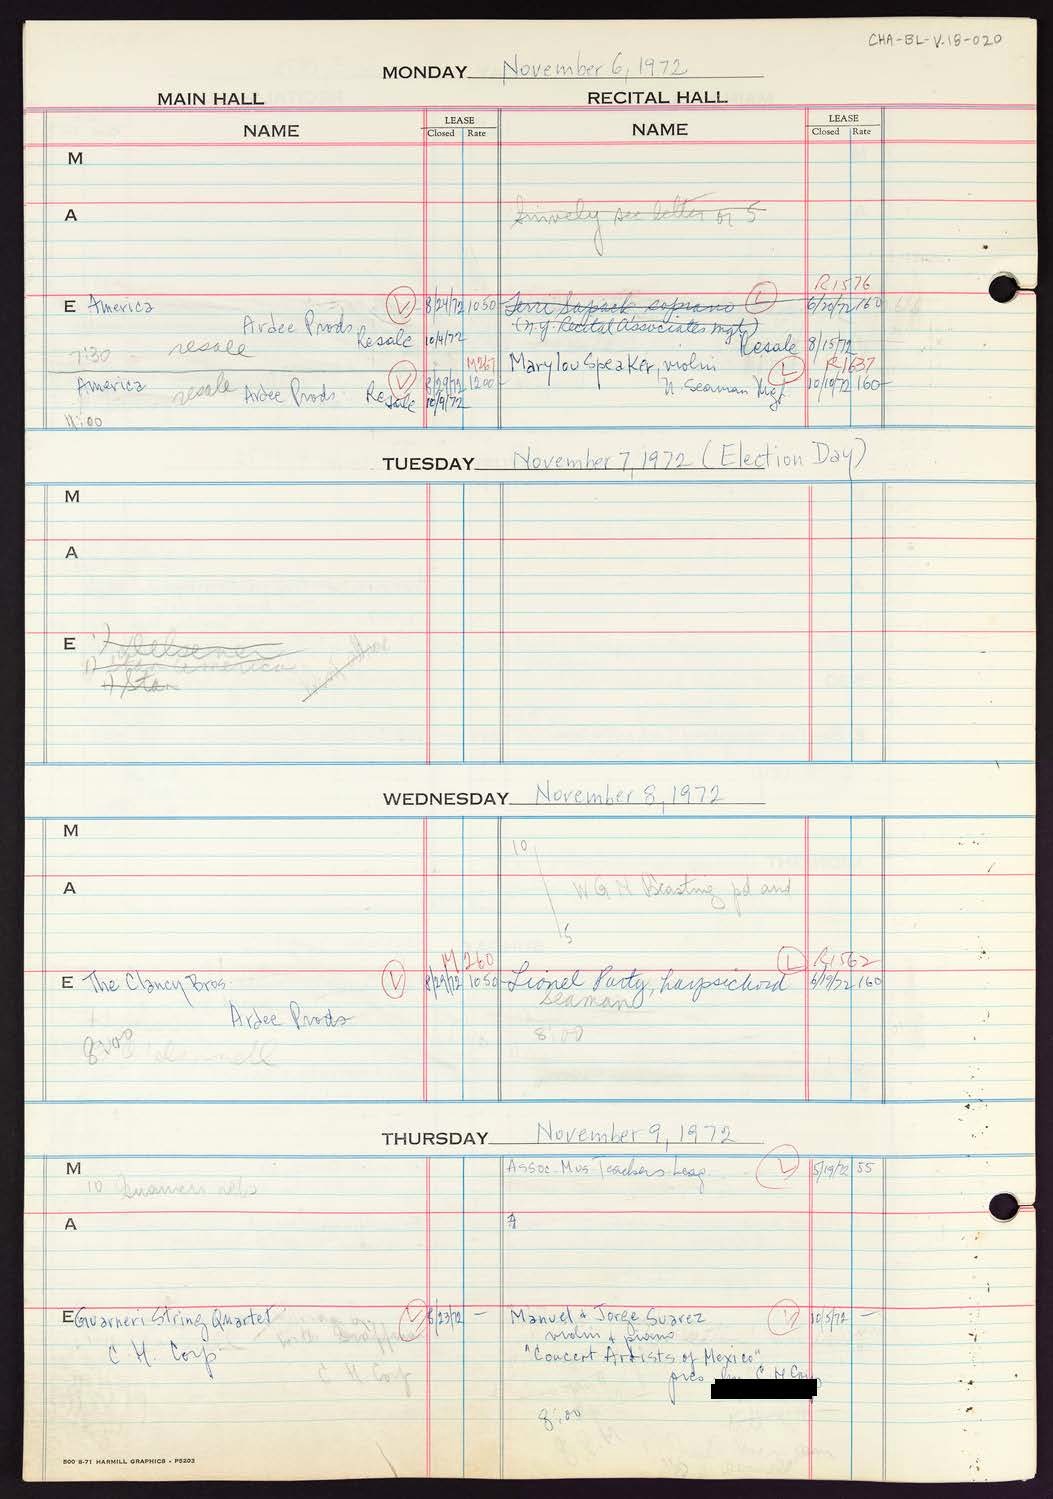 CHA-BL-V.18-020
MONDAY November 6, 1972
MAIN HALL RECITAL HALL
NAME LEASE Closed Rate NAME LEASE Closed Rate
M
A
see letter of 5
R1576
E America 8/24/72 1050 Terri soprano 6/20/72 160
Ardee Prods. (N.Y. Recital Associates mgt)
7:30 resale Resale 10/4/72 Resale 8/15/72
M267 Mary lou Speaker, violin R1637
America resale Ardee Prods. 8/29/72 1200 N. Seaman Mgt. 10/10/72 160
Resale 10/9/72
11:00
TUESDAY November 7, 1972 (Election Day)
M
A
E Delsener
America
Star
WEDNESDAY November 8, 1972
M
10
A
WGN pd and
5
M 260 R1562
E The Clancy Bros. 8/29/72 1050 Lionel Party, harpsichord 6/19/72 160
Seaman
Ardee Prods
8:00 8:00
THURSDAY November 9, 1972
M Assoc. Mus Teachers Leag. 5/19/72 55
10 Guarneri
A
E Guarneri String Quartet 8/23/72 — Manuel & Jorge Suarez 10/5/72 —
violin & piano
C. H. Corp "Concert Artists of Mexico"
C H Corp pres C H Corp
8:00
500 8-71 HARMILL GRAPHICS • P5203